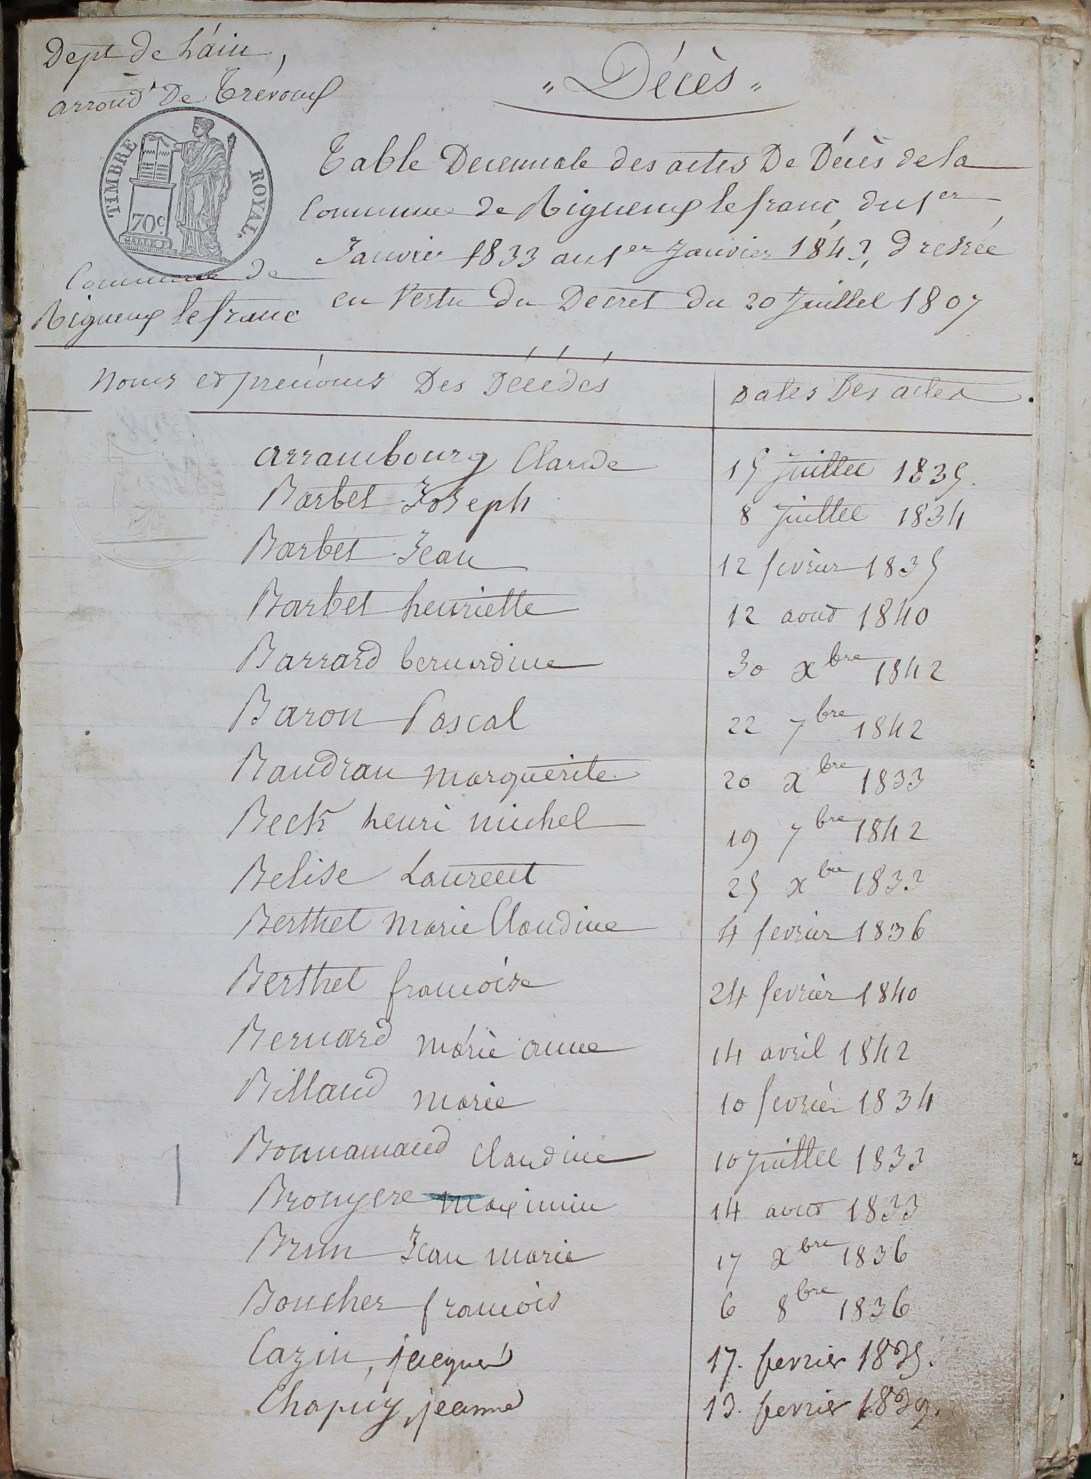 Dept de L'ain,
arrond.t De Trévoux
" Décès "
TIMBRE ROYAL.
70c
Table Decennale des actes De Décès de la
Commune de Rigneux le franc, du 1er
Janvier 1833 au 1er Janvier 1843, dressée
en Vertu du Decret du 20 Juillet 1807
Commune de
Rigneux le franc
Noms et prénoms Des Décédés
Dates Des actes.
arrambourg Claude 15 juillet 1835.
Barbet Joseph 8 juillet 1834
Barbet Jean 12 fevrier 1835
Barbet henriette 12 aout 1840
Barrard bernardine 30 xbre 1842
Baron Pascal 22 7bre 1842
Baudrau marguerite 20 xbre 1833
Beck henri michel 19 7bre 1842
Belise Laurent 25 xbre 1833
Berthet Marie Claudine 4 fevrier 1836
Berthet francoise 24 fevrier 1840
Bernard marie anne 14 avril 1842
Billaud marie 10 fevrier 1834
Bonnamaud Claudine 10 juillet 1833
Brouyere maximin 14 aout 1833
Brun Jean marie 17 xbre 1836
Boucher francois 6 8bre 1836
Cazin, jacques 17. fevrier 1835.
Chapuy, jeanne 13. fevrier 1839.